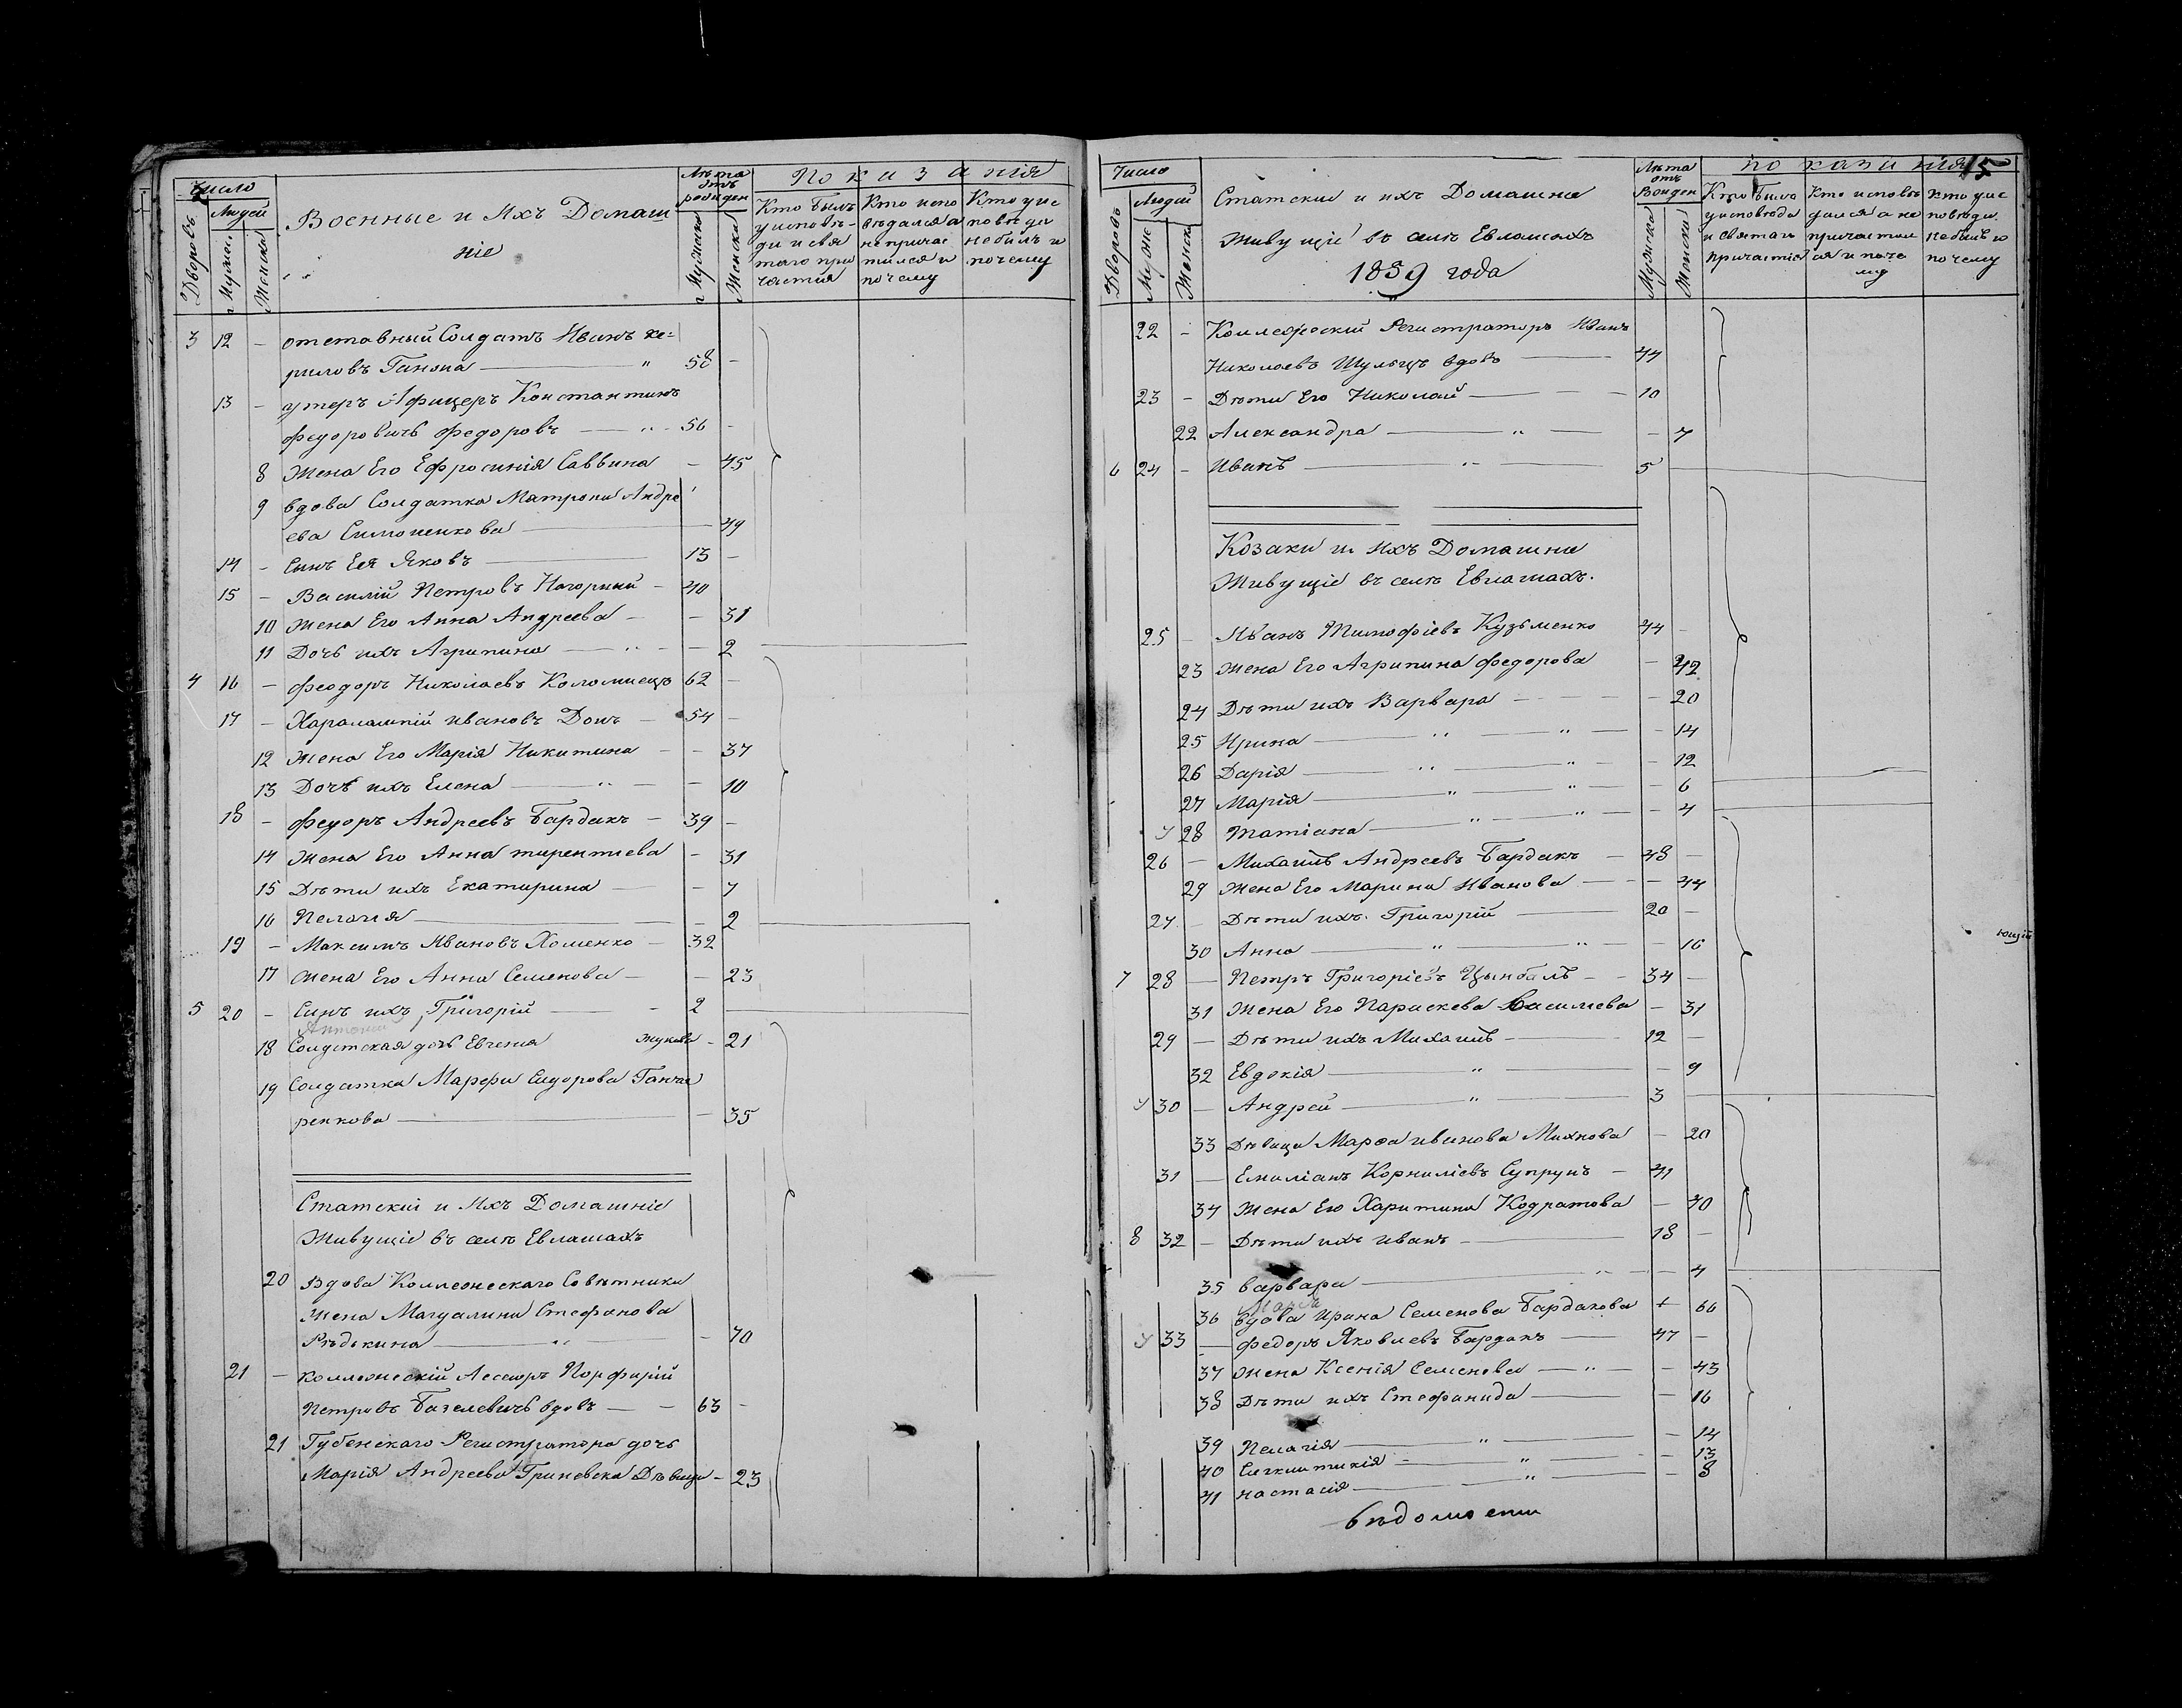 Число
Людей
Дворовъ
Мужес.
Женска
Военные и Ихъ Домаш
ніе
Лѣта
отъ
рожден
Мужска
Женска
Показанія
Кто былъ
у исповѣ-
ди и свя
таго при
частія
Кто испо
вѣдался а
не причас
тился и
почему
Кто у ис
повѣди
небылъ и
почему
3 12 - отставный Солдатъ Иванъ Ки=
риловъ Ганопа — " 58 -
13 - унтеръ Афицеръ Константинъ
Федоровичъ Федоровъ — " - 56 -
8 Жена Его Ефросинія Саввина - 45
9 вдова Солдатка Матрона Андре
ева Симоненкова — 49
14 - Сынъ Ея Яковъ — 13 -
15 - Василій Петровъ Нагорный - 40
10 Жена Его Анна Андреева - - 31
11 Дочь ихъ Агрипина — " - - 2
4 16 - Феодоръ Николаевъ Коломиецъ 62 -
17 - Харалампій Ивановъ Донъ - 54 -
12 Жена Его Марія Никитина - - 37
13 Дочь ихъ Елена — " - - 10
18 - Федоръ Андреевъ Бардакъ - 39 -
14 Жена Его Анна тирентиева - 31
15 Дѣти ихъ Екатирина — - 7
16 Пелагия — - 2
19 - Максимъ Ивановъ Хоменко - 32
17 Жена Его Анна Семенова - - 23
5 20 - Синъ ихъ Григорій — - 2
18 Солдатская дочь Евгения Жукова - 21
19 Солдатка Марфа Сидорова Ганча
ренкова — - 35
Статскіи и Ихъ Домашніе
Живущіе въ селѣ Евлашахъ
20 Вдова Коллежескаго Совѣтника
Жена Магдалина Стефанова
Рѣдькина — " — - 70
21 - коллежескій Асесоръ Порфирій
Петровъ Базелевичъ вдовъ — - 63 -
21 Губенскаго Регистратора дочь
Марія Андреева Гриневска Дѣвица - 23
15
Число
Людей
Дворовъ
Мужс
Женски
Статскии и ихъ Домашна
Живущіе въ селѣ Евлашахъ
1859 года
Лѣта
отъ
Рожден
Мужска
Женска
показания
Кто было
у исповѣда
и святаго
причастіе
Кто исповѣ
дался а не
причастил
ся и поче
му
Кто у ис
повѣди
небылъ и
почему
22 - Коллежескій Регистраторъ Иванъ
Николаевъ Шульцъ вдовъ — 44
23 - Дѣти Его Николай — - 10
22 Александра — " — - 7
6 24 - Иванъ — " — 5
Козаки и Ихъ Домашна
Живущіе въ селѣ Евлашахъ.
25 - Иванъ Тимофіевъ Кузьменко 44 -
23 Жена Его Агрипина Федорова - 42
24 Дѣти ихъ Варвара - - - - 20
25 Ирина — " — " — - 14
26 Дарія — " — " - - 12
27 Марія — " — " - - 6
28 Татіана — " — " - - 4
26 - Михаилъ Андреевъ Бардакъ - 48 -
29 Жена Его Марина Иванова - - 44
27 - Дѣти ихъ. Григорій — 20 -
30 Анна — " — " - - 16
7 28 - Петръ Григоріевъ Цынбалъ - - 34 -
31 Жена Его Параскева Василиева - 31
29 - Дѣти ихъ Михаилъ — 12 -
32 Евдокія — " — - 9
30 - Андрей — " — 3
33 Дѣвица Марѳа Иванова Михнова - 20
31 - Емиліанъ Корниліевъ Супрунъ - 41
34 Жена Его Харитина Кодратова - 30
8 32 - Дѣти ихъ Иванъ — 18 -
35 варвара — " - - 4
36 вдова Ирина Семенова Бардакова + 66
33 - Федоръ Яковлевъ Бардакъ — 47 -
37 Жена Ксенія Семенова — " - - 43
38 Дѣти ихъ Стефанида — - 16
39 Пелагія — " — - 14
40 Сигклитикія - " — - 13
41 настасія — " — - 8
ющій